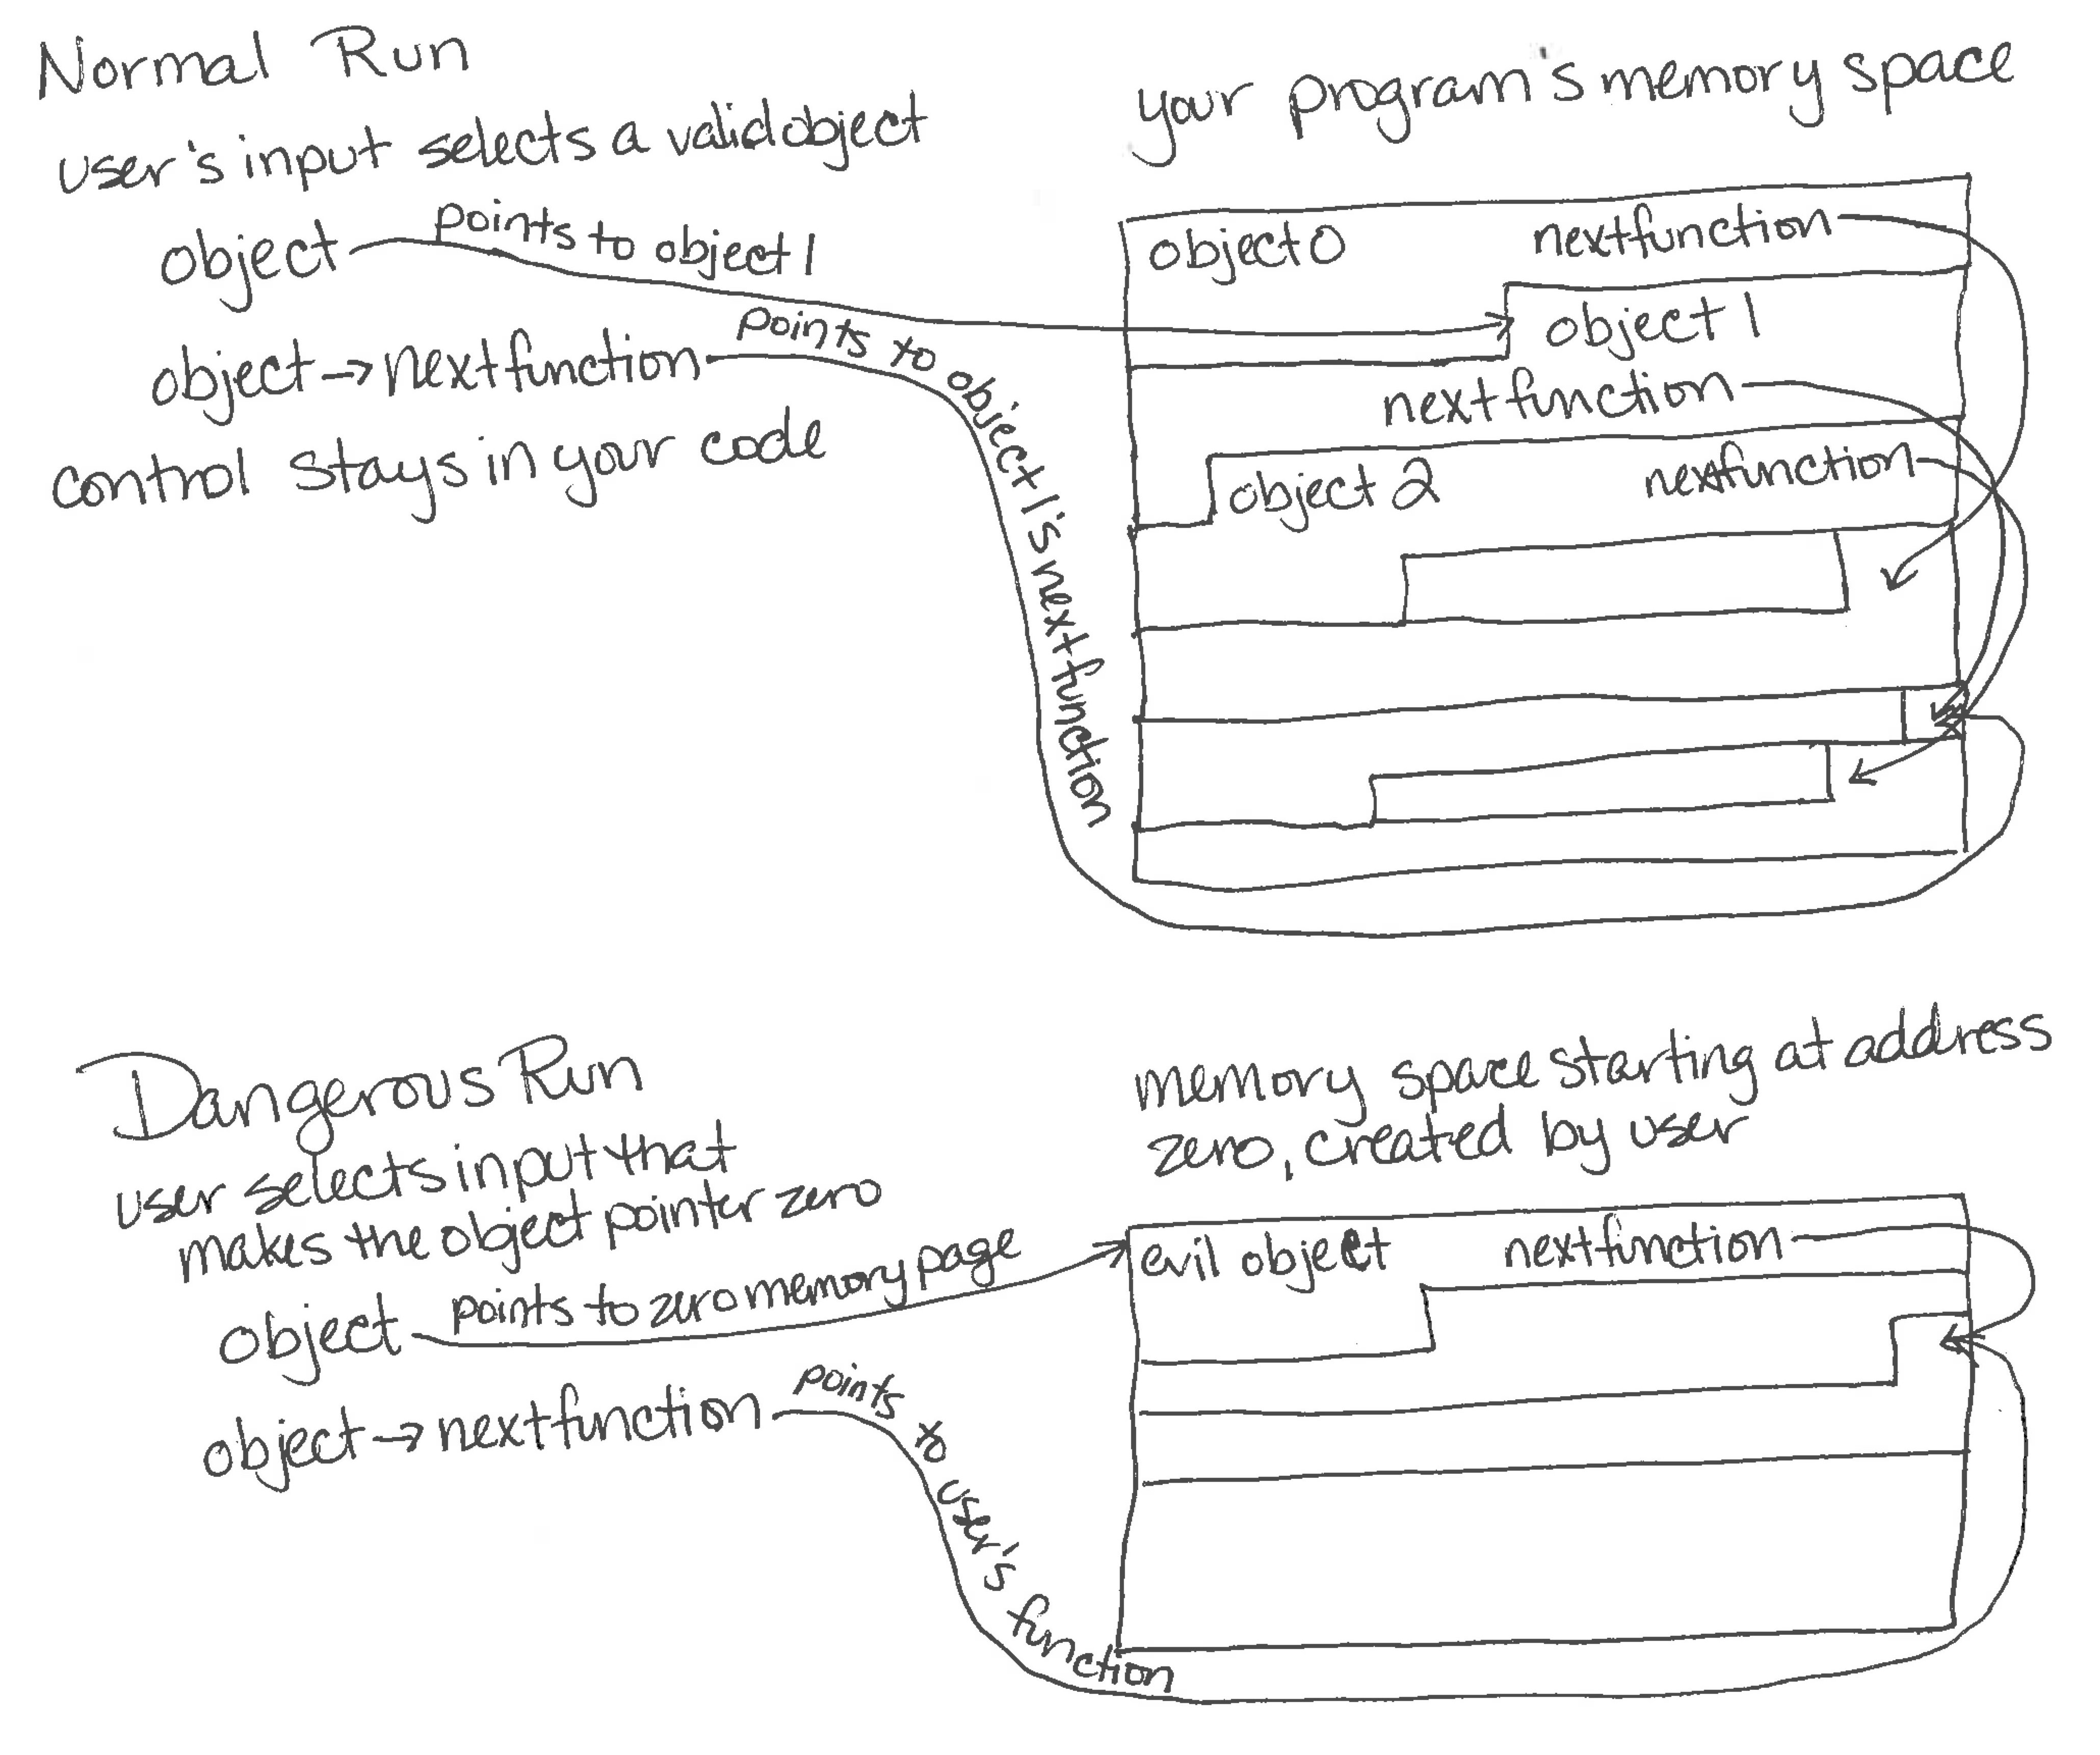 Normal Run
user's input selects a valid object
object points to object 1
object → nextfunction points to object 1's nextfunction
control stays in your code
your program's memory space
object 0 nextfunction
object 1
nextfunction
object 2 nextfunction
Dangerous Run
user selects input that
makes the object pointer zero
object points to zero memory page
object → nextfunction points to user's function
memory space starting at address
zero, created by user
evil object nextfunction